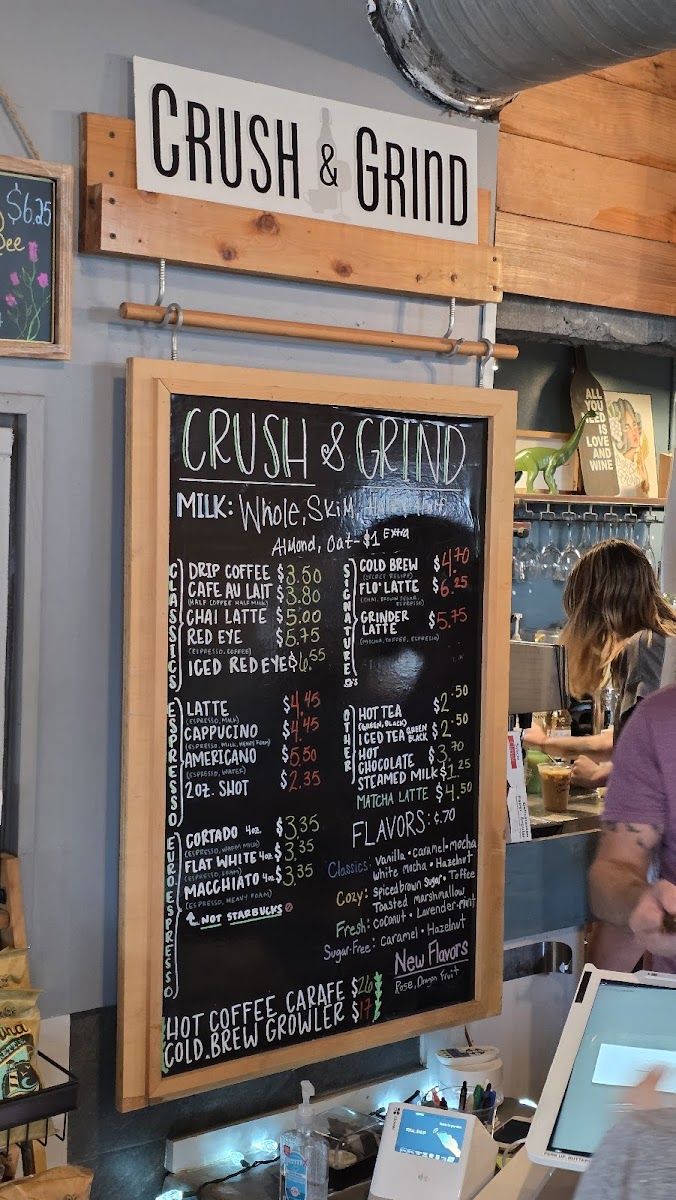 CRUSH & GRIND
$6.25
CRUSH & GRIND
MILK: Whole, Skim, Half & Half
Almond, Oat - $1 Extra
CLASSICS
DRIP COFFEE $3.50
CAFE AU LAIT $3.80
(HALF COFFEE HALF MILK)
CHAI LATTE $5.00
RED EYE $5.75
(ESPRESSO, COFFEE)
ICED RED EYE $6.55
SIGNATURE
COLD BREW $4.70
(SECRET RECIPE)
FLO' LATTE $6.25
(CHAI, BROWN SUGAR, ESPRESSO)
GRINDER LATTE $5.75
(MOCHA, COFFEE, ESPRESSO)
ESPRESSO
LATTE $4.45
(ESPRESSO, MILK)
CAPPUCINO $4.45
(ESPRESSO, MILK, HEAVY FOAM)
AMERICANO $5.50
(ESPRESSO, WATER)
2OZ. SHOT $2.35
OTHER
HOT TEA $2.50
(GREEN, BLACK)
ICED TEA GREEN BLACK $2.50
HOT CHOCOLATE $3.70
STEAMED MILK $1.25
MATCHA LATTE $4.50
EURO ESPRESSO
CORTADO 4oz $3.35
(ESPRESSO, WARM MILK)
FLAT WHITE 4oz $3.35
(ESPRESSO, FOAM)
MACCHIATO 4oz $3.35
(ESPRESSO, HEAVY FOAM)
NOT STARBUCKS
FLAVORS: ¢.70
Classics: Vanilla • Caramel • Mocha
White Mocha • Hazelnut
Cozy: Spiced brown Sugar • Toffee
Toasted marshmallow
Fresh: coconut • Lavender • Mint
Sugar-Free: caramel • Hazelnut
New Flavors
Rose, Dragon Fruit
HOT COFFEE CARAFE $26
COLD BREW GROWLER $17
ALL
YOU
NEED
IS
LOVE
AND
WINE